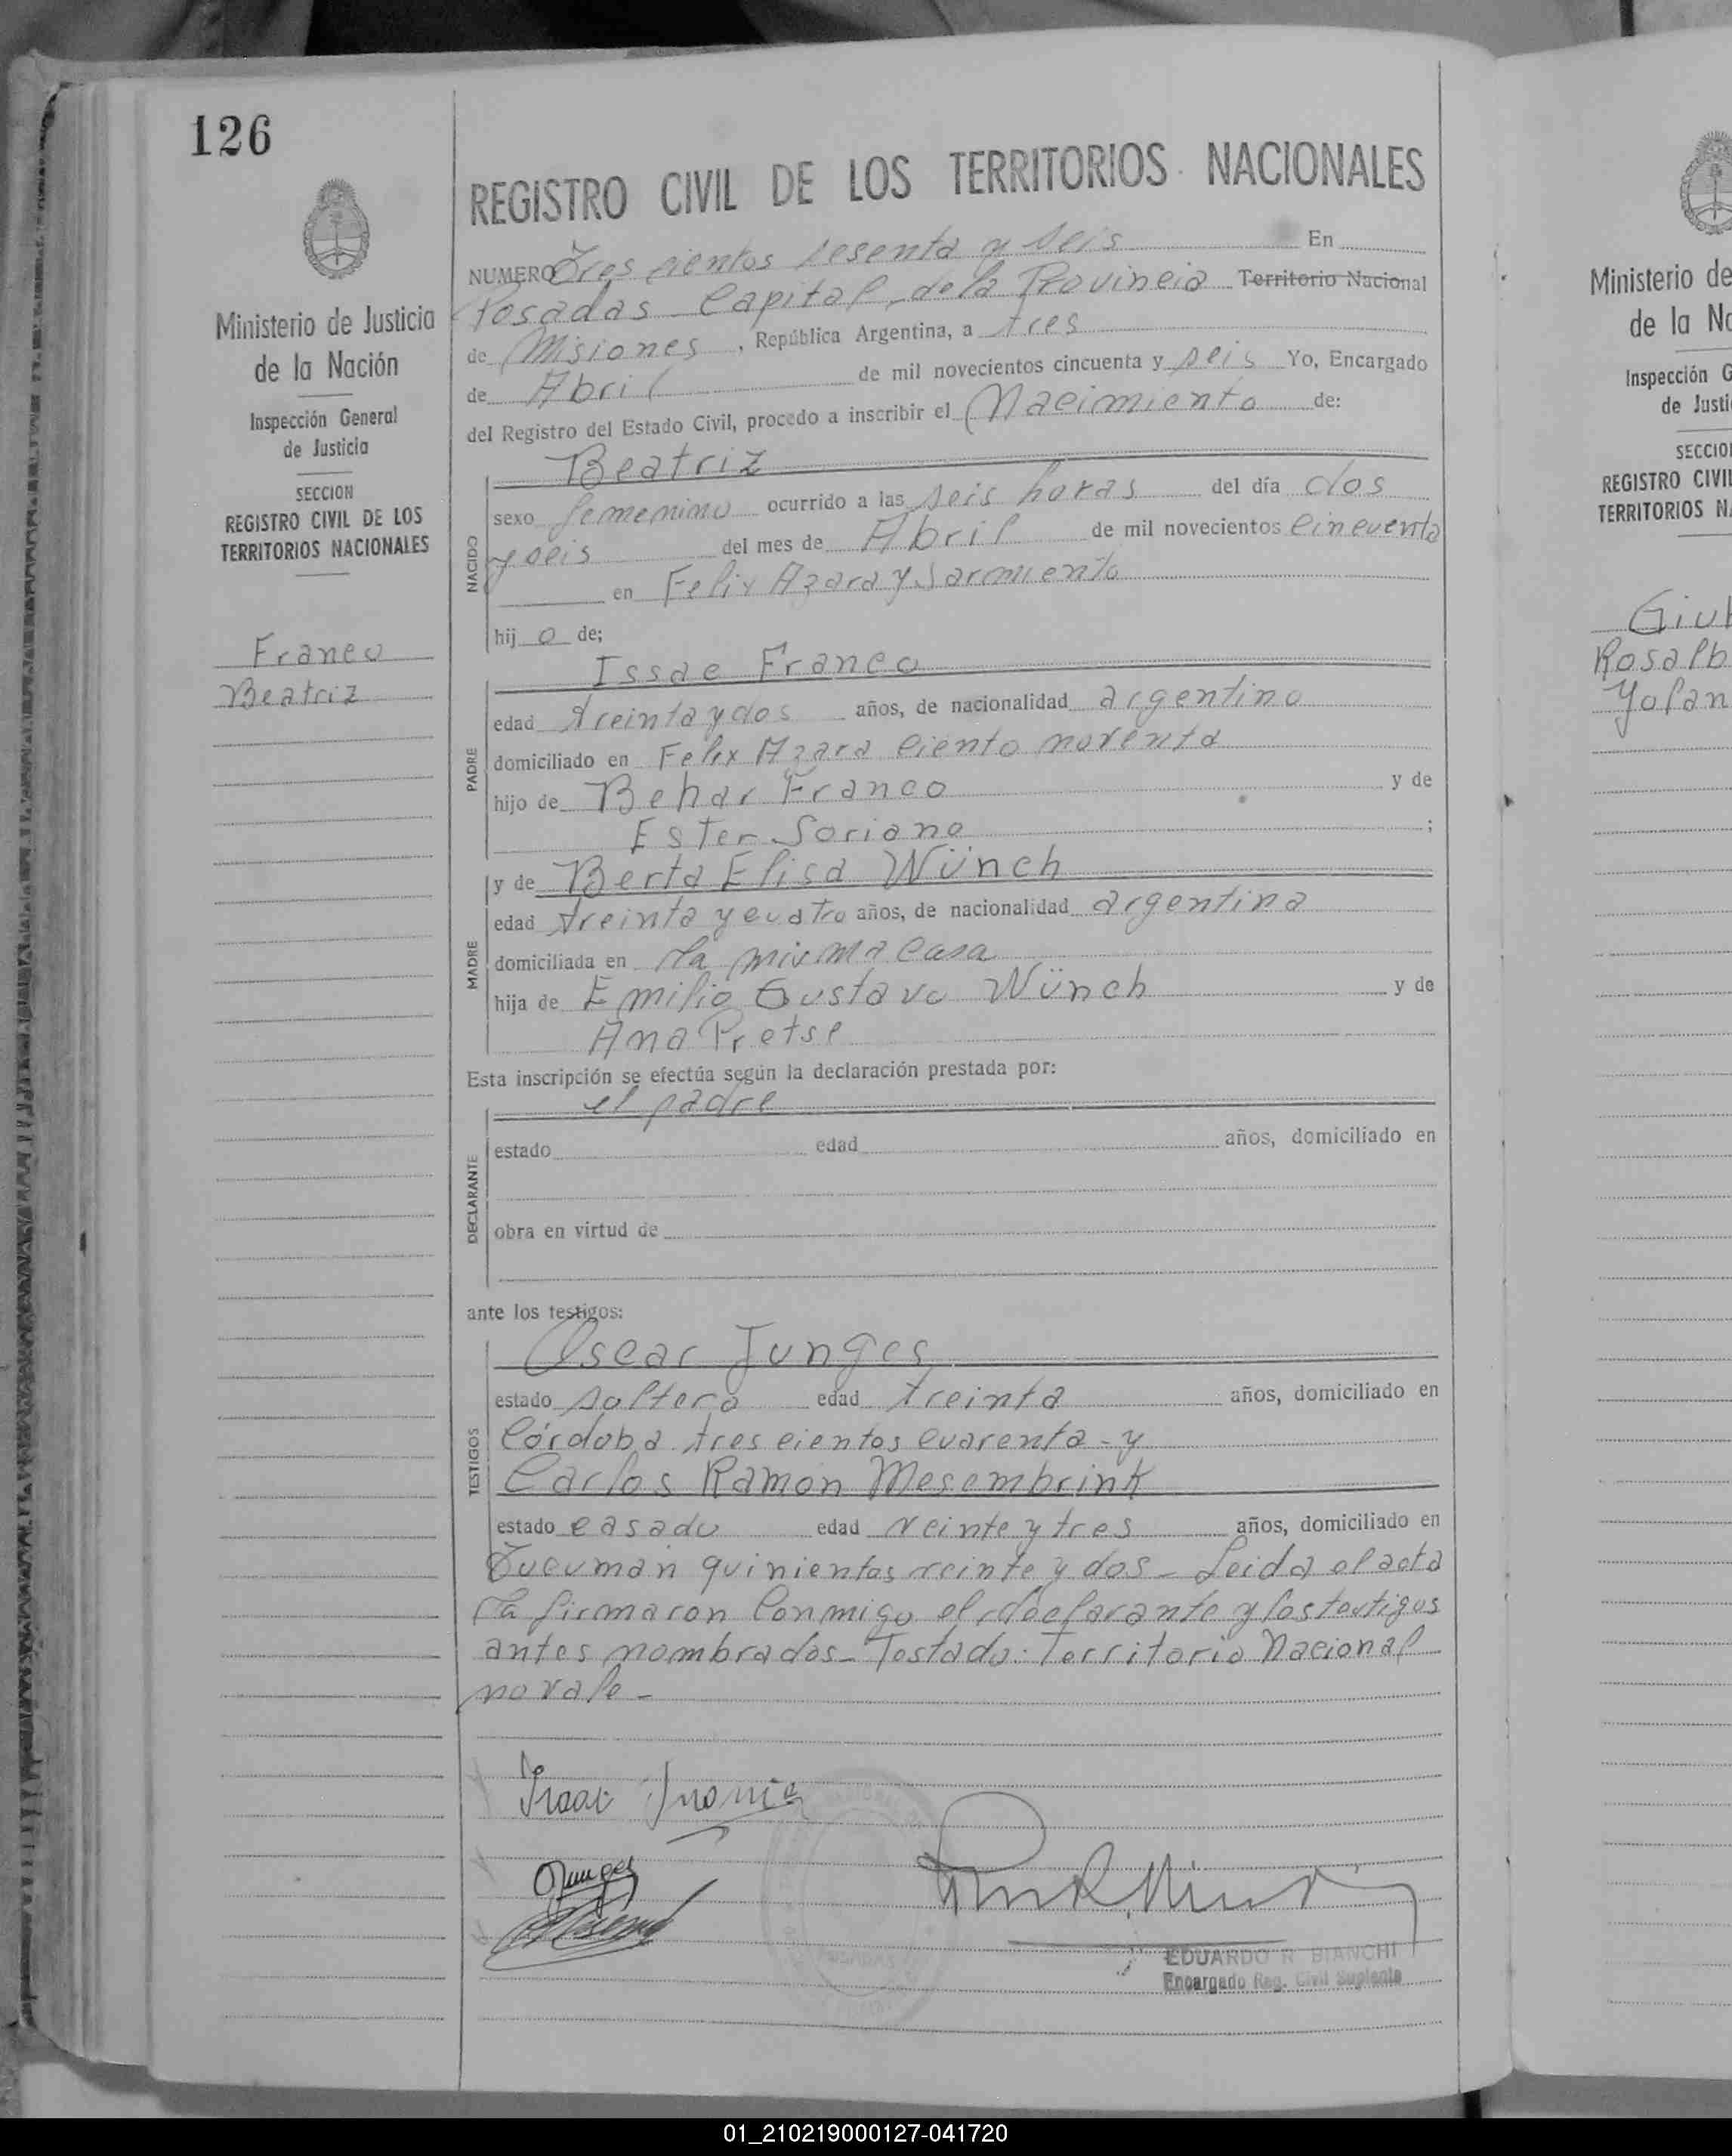 126
Ministerio de Justicia
de la Nación
Inspección General
de Justicia
SECCION
REGISTRO CIVIL DE LOS
TERRITORIOS NACIONALES
Franco
Beatriz
REGISTRO CIVIL DE LOS TERRITORIOS NACIONALES
NUMERO Trescientos sesenta y seis En
Posadas Capital de la Provincia Territorio Nacional
de Misiones, República Argentina, a tres
de Abril de mil novecientos cincuenta y seis Yo, Encargado
del Registro del Estado Civil, procedo a inscribir el Nacimiento de:
NACIDO
Beatriz
sexo femenino ocurrido a las seis horas del día dos
del mes de Abril de mil novecientos cincuenta
y seis
en Felix Azara y Sarmiento
hijo de;
PADRE
Issac Franco
edad treinta y dos años, de nacionalidad argentino
domiciliado en Felix Azara ciento noventa
hijo de Behar Franco y de
Ester Soriano ;
MADRE
y de Berta Elisa Wünch
edad treinta y cuatro años, de nacionalidad argentina
domiciliada en la misma casa
hija de Emilio Gustavo Wünch y de
Ana Pretsl
Esta inscripción se efectúa según la declaración prestada por:
DECLARANTE
el padre
estado edad años, domiciliado en
obra en virtud de
ante los testigos:
TESTIGOS
Oscar Junges
estado soltero edad treinta años, domiciliado en
Córdoba trescientos cuarenta - y
Carlos Ramon Mesembrink
estado casado edad veinte y tres años, domiciliado en
Tucumán quinientos veinte y dos - Leida el acta
la firmaron conmigo el declarante y los testigos
antes nombrados - Testado: Territorio Nacional
no vale -
Isaac Franco
OJunges
EDUARDO R. BIANCHI
Encargado Reg. Civil Suplente
Ministerio de
de la Na
Inspección G
de Justi
SECCIO
REGISTRO CIVIL
TERRITORIOS N
Giul
Rosalb
Yolan
01_210219000127-041720